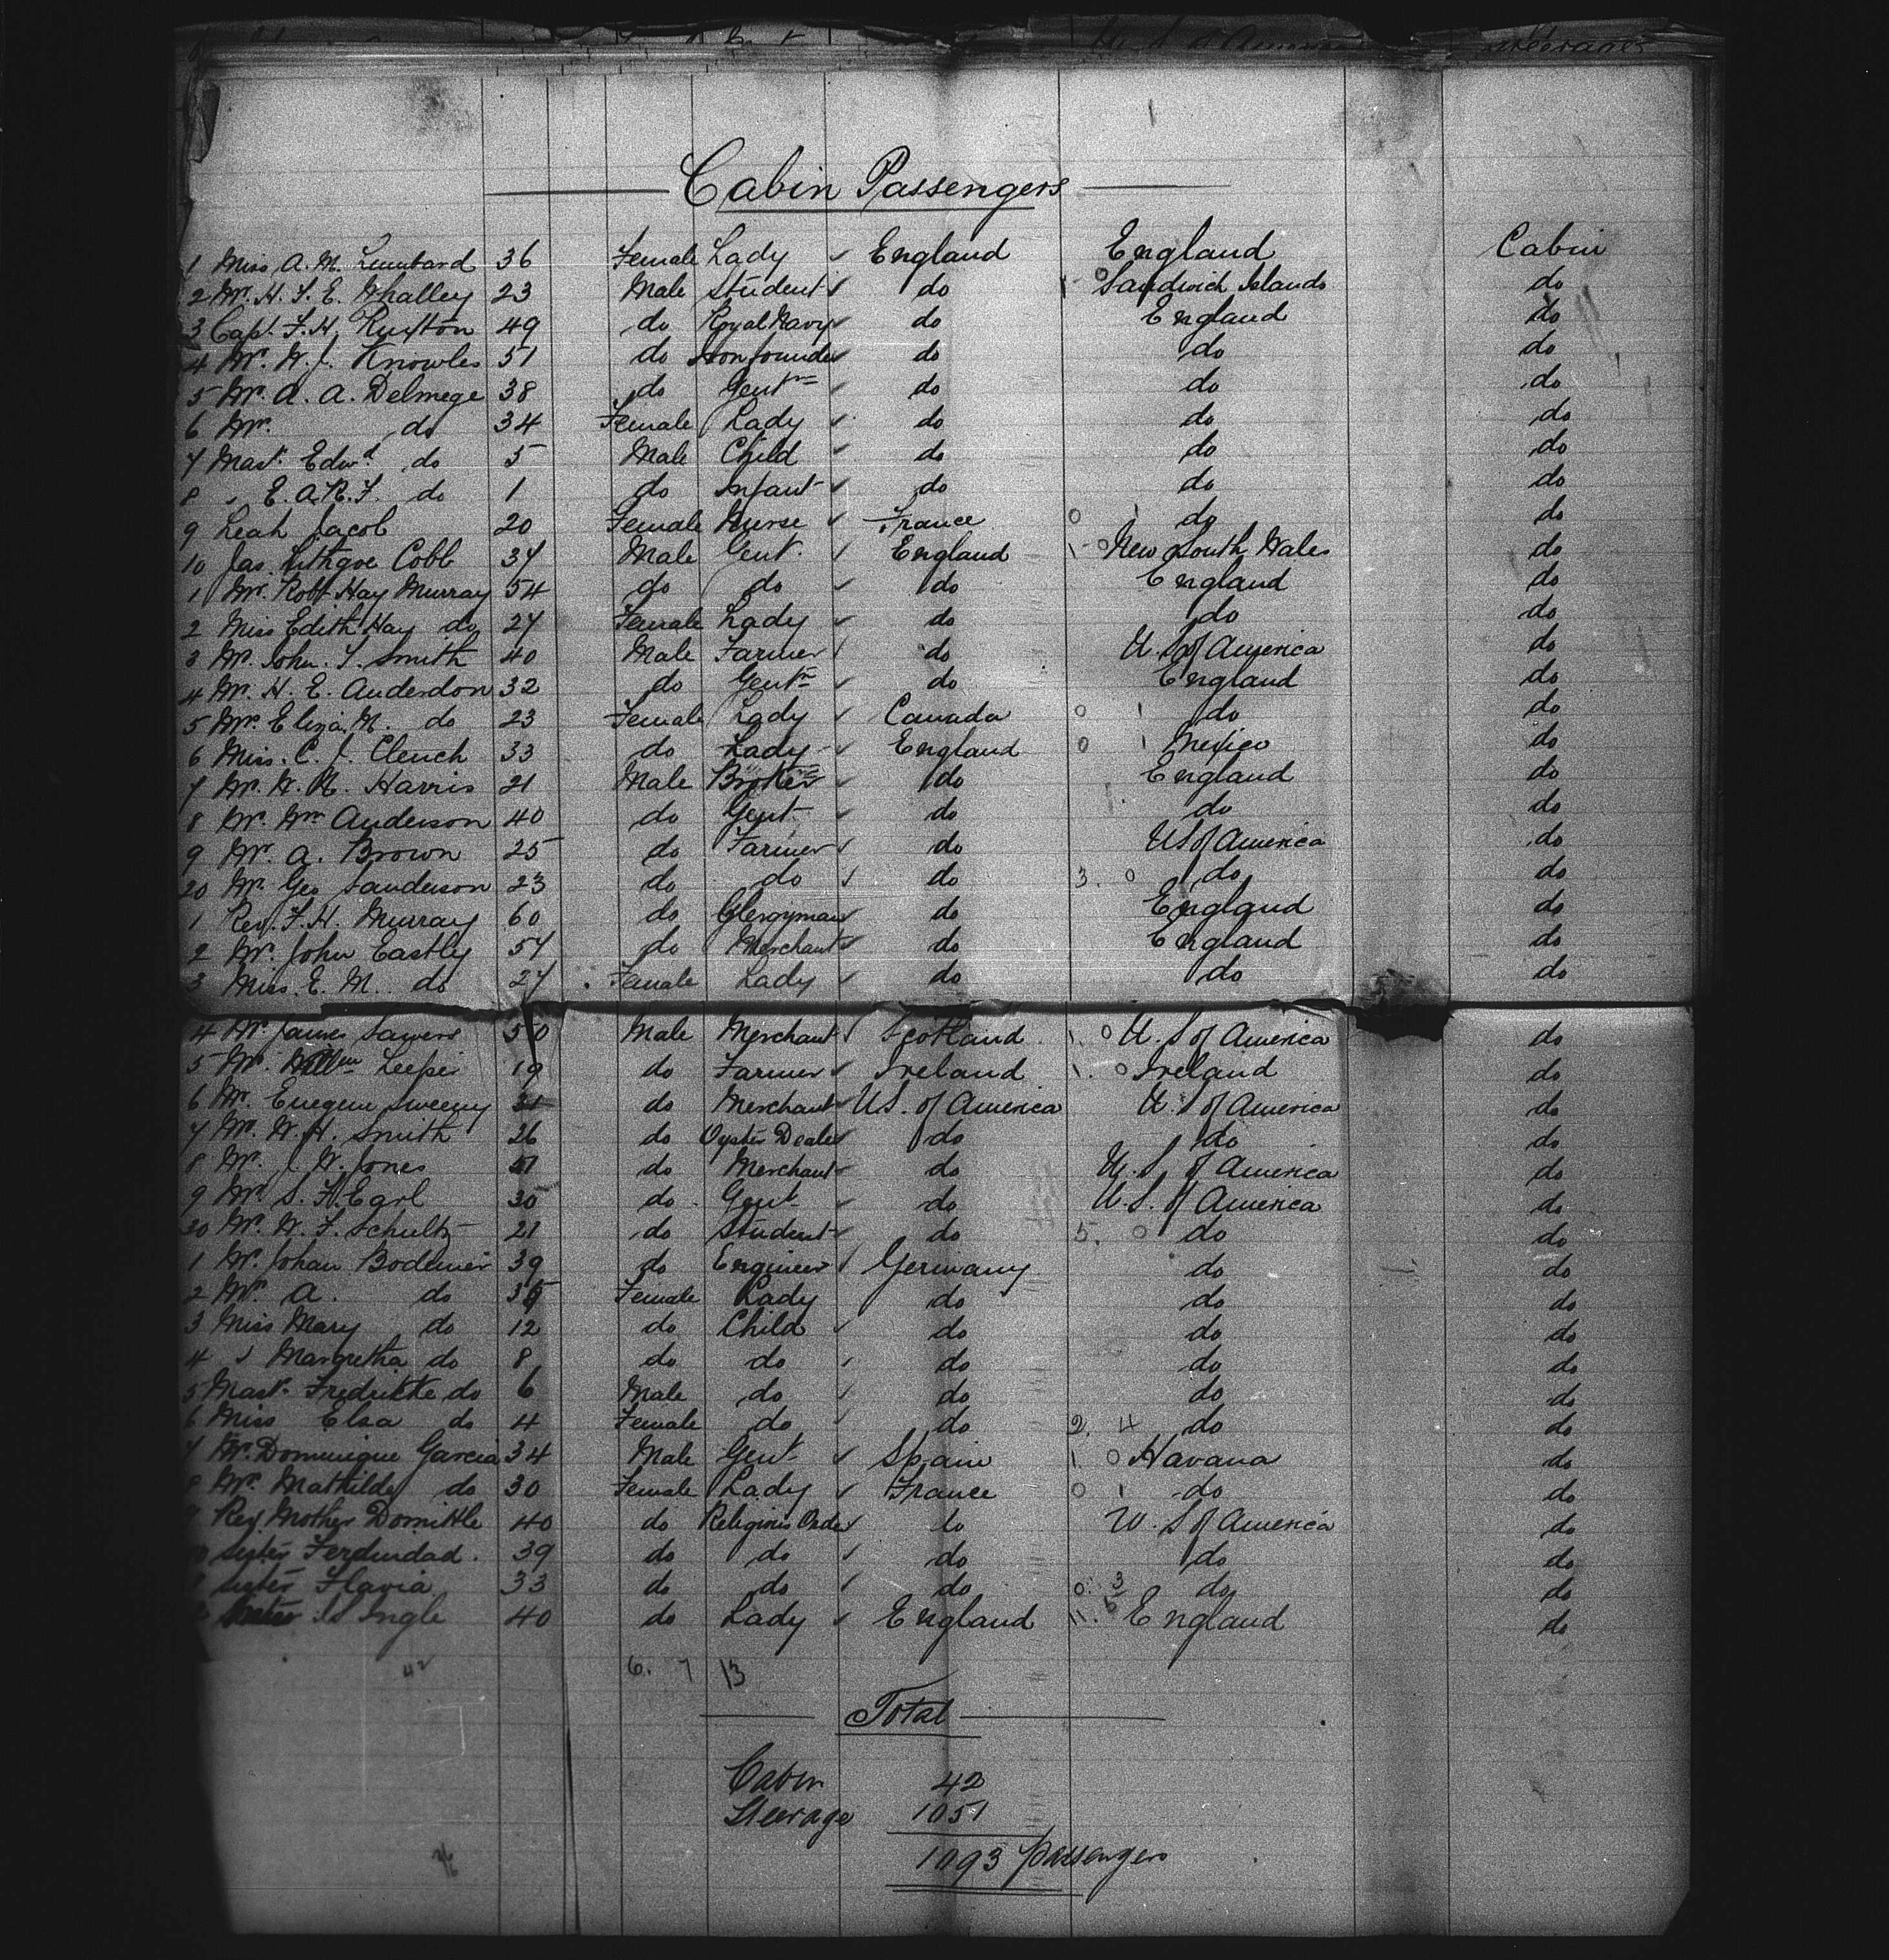 Cabin Passengers
1 Miss A. M. Lumbard 36 Female Lady England England Cabin
2 Mr. H. S. E. Whalley 23 Male Student do 1 0 Sandwich Islands do
3 Capt. F. H. Ruxton 49 do Royal Navy do England do
4 Mr. W. J. Knowles 51 do Ironfounder do do do
5 Mr. A. A. Delmege 38 do Gentn do do do
6 Mrs. do 34 Female Lady do do do
7 Mast. Edwd. do 5 Male Child do do do
8 " E. A. R. S. do 1 do Infant do do do
9 Leah Jacob 20 Female Nurse France 0 1 do do
10 Jas. Lithgoe Cobb 37 Male Gent. England 1 0 New South Wales do
1 Mr. Robt Hay Murray 54 do do do England do
2 Miss Edith Hay do 27 Female Lady do do do
3 Mr. John. S. Smith 40 Male Farmer do U. S of America do
4 Mr. H. E. Anderdon 32 do Gentn do England do
5 Mrs. Eliza M. do 23 Female Lady Canada 0 1 do do
6 Miss. C. J. Clench 33 do Lady England 0 1 Mexico do
7 Mr. W. H. Harris 21 Male Broker do England do
8 Mr. Wm Anderson 40 do Gent do do do
9 Mr. A. Brown 25 do Farmer do US of America do
20 Mr. Geo Sanderson 23 do do do 3. 0 do do
1 Rev. F. H. Murray 60 do Clergyman do England do
2 Mr. John Eastly 57 do Merchant do England do
3 Miss. E. M. do 27 Female Lady do do do
4 Mr. James Sawers 50 Male Merchant Scotland 1. 0 U. S of America do
5 Mr. Willm Leeper 19 do Farmer Ireland 1. 0 Ireland do
6 Mr. Eugene Sweeny do Merchant US. of America U. S of America do
7 Mr. W. H. Smith 26 do Oyster Dealer do do do
8 Mr. J. W. Jones do Merchant do U. S. of America do
9 Mr. S. H. Earl 35 do Gent do U. S. of America do
30 Mr. W. F. Schultz 21 do Student do 5. 0 do do
1 Mr. Johan Bodemer 39 do Engineer Germany do do
2 Mrs A. do Female Lady do do do
3 Miss Mary do 12 do Child do do do
4 " Margretha do 8 do do do do do
5 Mast. Fredrikke do 6 Male do do do do
6 Miss Elsa do 4 Female do do 2. 4 do do
7 Mr. Dominique Garcia 34 Male Gent Spain 1. 0 Havana do
8 Mrs. Mathilde do 30 Female Lady France 0 1 do do
9 Rev. Mother Domitile 40 do Religious Order do U. S of America do
Sister Ferdindad. 39 do do do do do
Sister Flavia 33 do do do 0. 3 do do
Ingle 40 do Lady England 11. 5 England do
42 6. 7 13
Total
Cabin 42
Steerage 1051
1093 Passengers